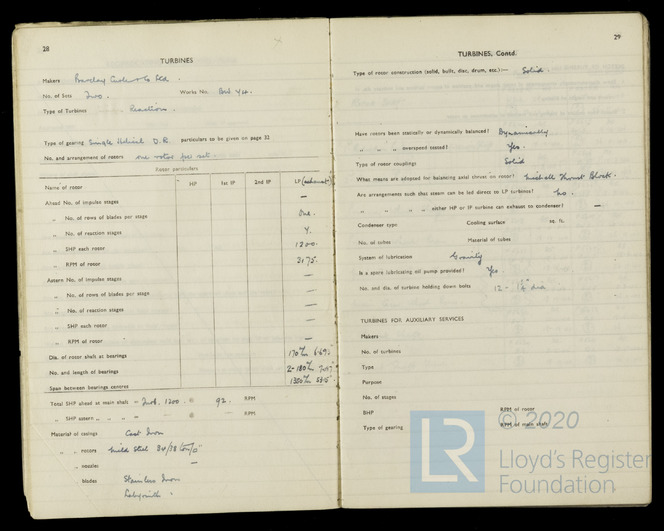 28
TURBINES
Makers Barclay Curle & Co Ltd.
No. of Sets Two. Works No.
Type of Turbines Reaction.
Type of gearing Single Helical D.R. particulars to be given on page 32
No. and arrangement of rotors one rotor per set
Rotor particulars
Name of rotor HP 1st IP 2nd IP LP (exhaust)
Ahead No. of impulse stages —
„ No. of rows of blades per stage One.
„ No. of reaction stages
„ SHP each rotor 1200.
„ RPM of rotor 3175.
Astern No. of impulse stages —
„ No. of rows of blades per stage —
„ No. of reaction stages —
„ SHP each rotor —
„ RPM of rotor —
Dia. of rotor shaft at bearings 170 m/m 6.69"
No. and length of bearings 2 - 180 m/m
Span between bearings centres
Total SHP ahead at main shaft 1200. @ 92. RPM
„ SHP astern „ „ „ — @ — RPM
Material of casings Cast Iron
„ „ rotors Mild Steel 34/38 ton/□"
„ „ nozzles —
„ „ blades Stainless Iron
Labyrinth "
29
TURBINES, Contd.
Type of rotor construction (solid, built, disc, drum, etc.)— Solid.
Have rotors been statically or dynamically balanced? Dynamically
„ „ „ overspeed tested? Yes.
Type of rotor couplings Solid
What means are adopted for balancing axial thrust on rotor? Michell Thrust Block.
Are arrangements such that steam can be led direct to LP turbines? No.
„ „ „ „ either HP or IP turbine can exhaust to condenser? —
Condenser type Cooling surface sq. ft.
No. of tubes Material of tubes
System of lubrication Gravity
Is a spare lubricating oil pump provided? Yes.
No. and dia. of turbine holding down bolts 12 - dia
TURBINES FOR AUXILIARY SERVICES
Makers
No. of turbines
Type
Purpose
No. of stages
BHP RPM of rotor
Type of gearing RPM of main shaft
© 2020
LR
Lloyd's Register
Foundation